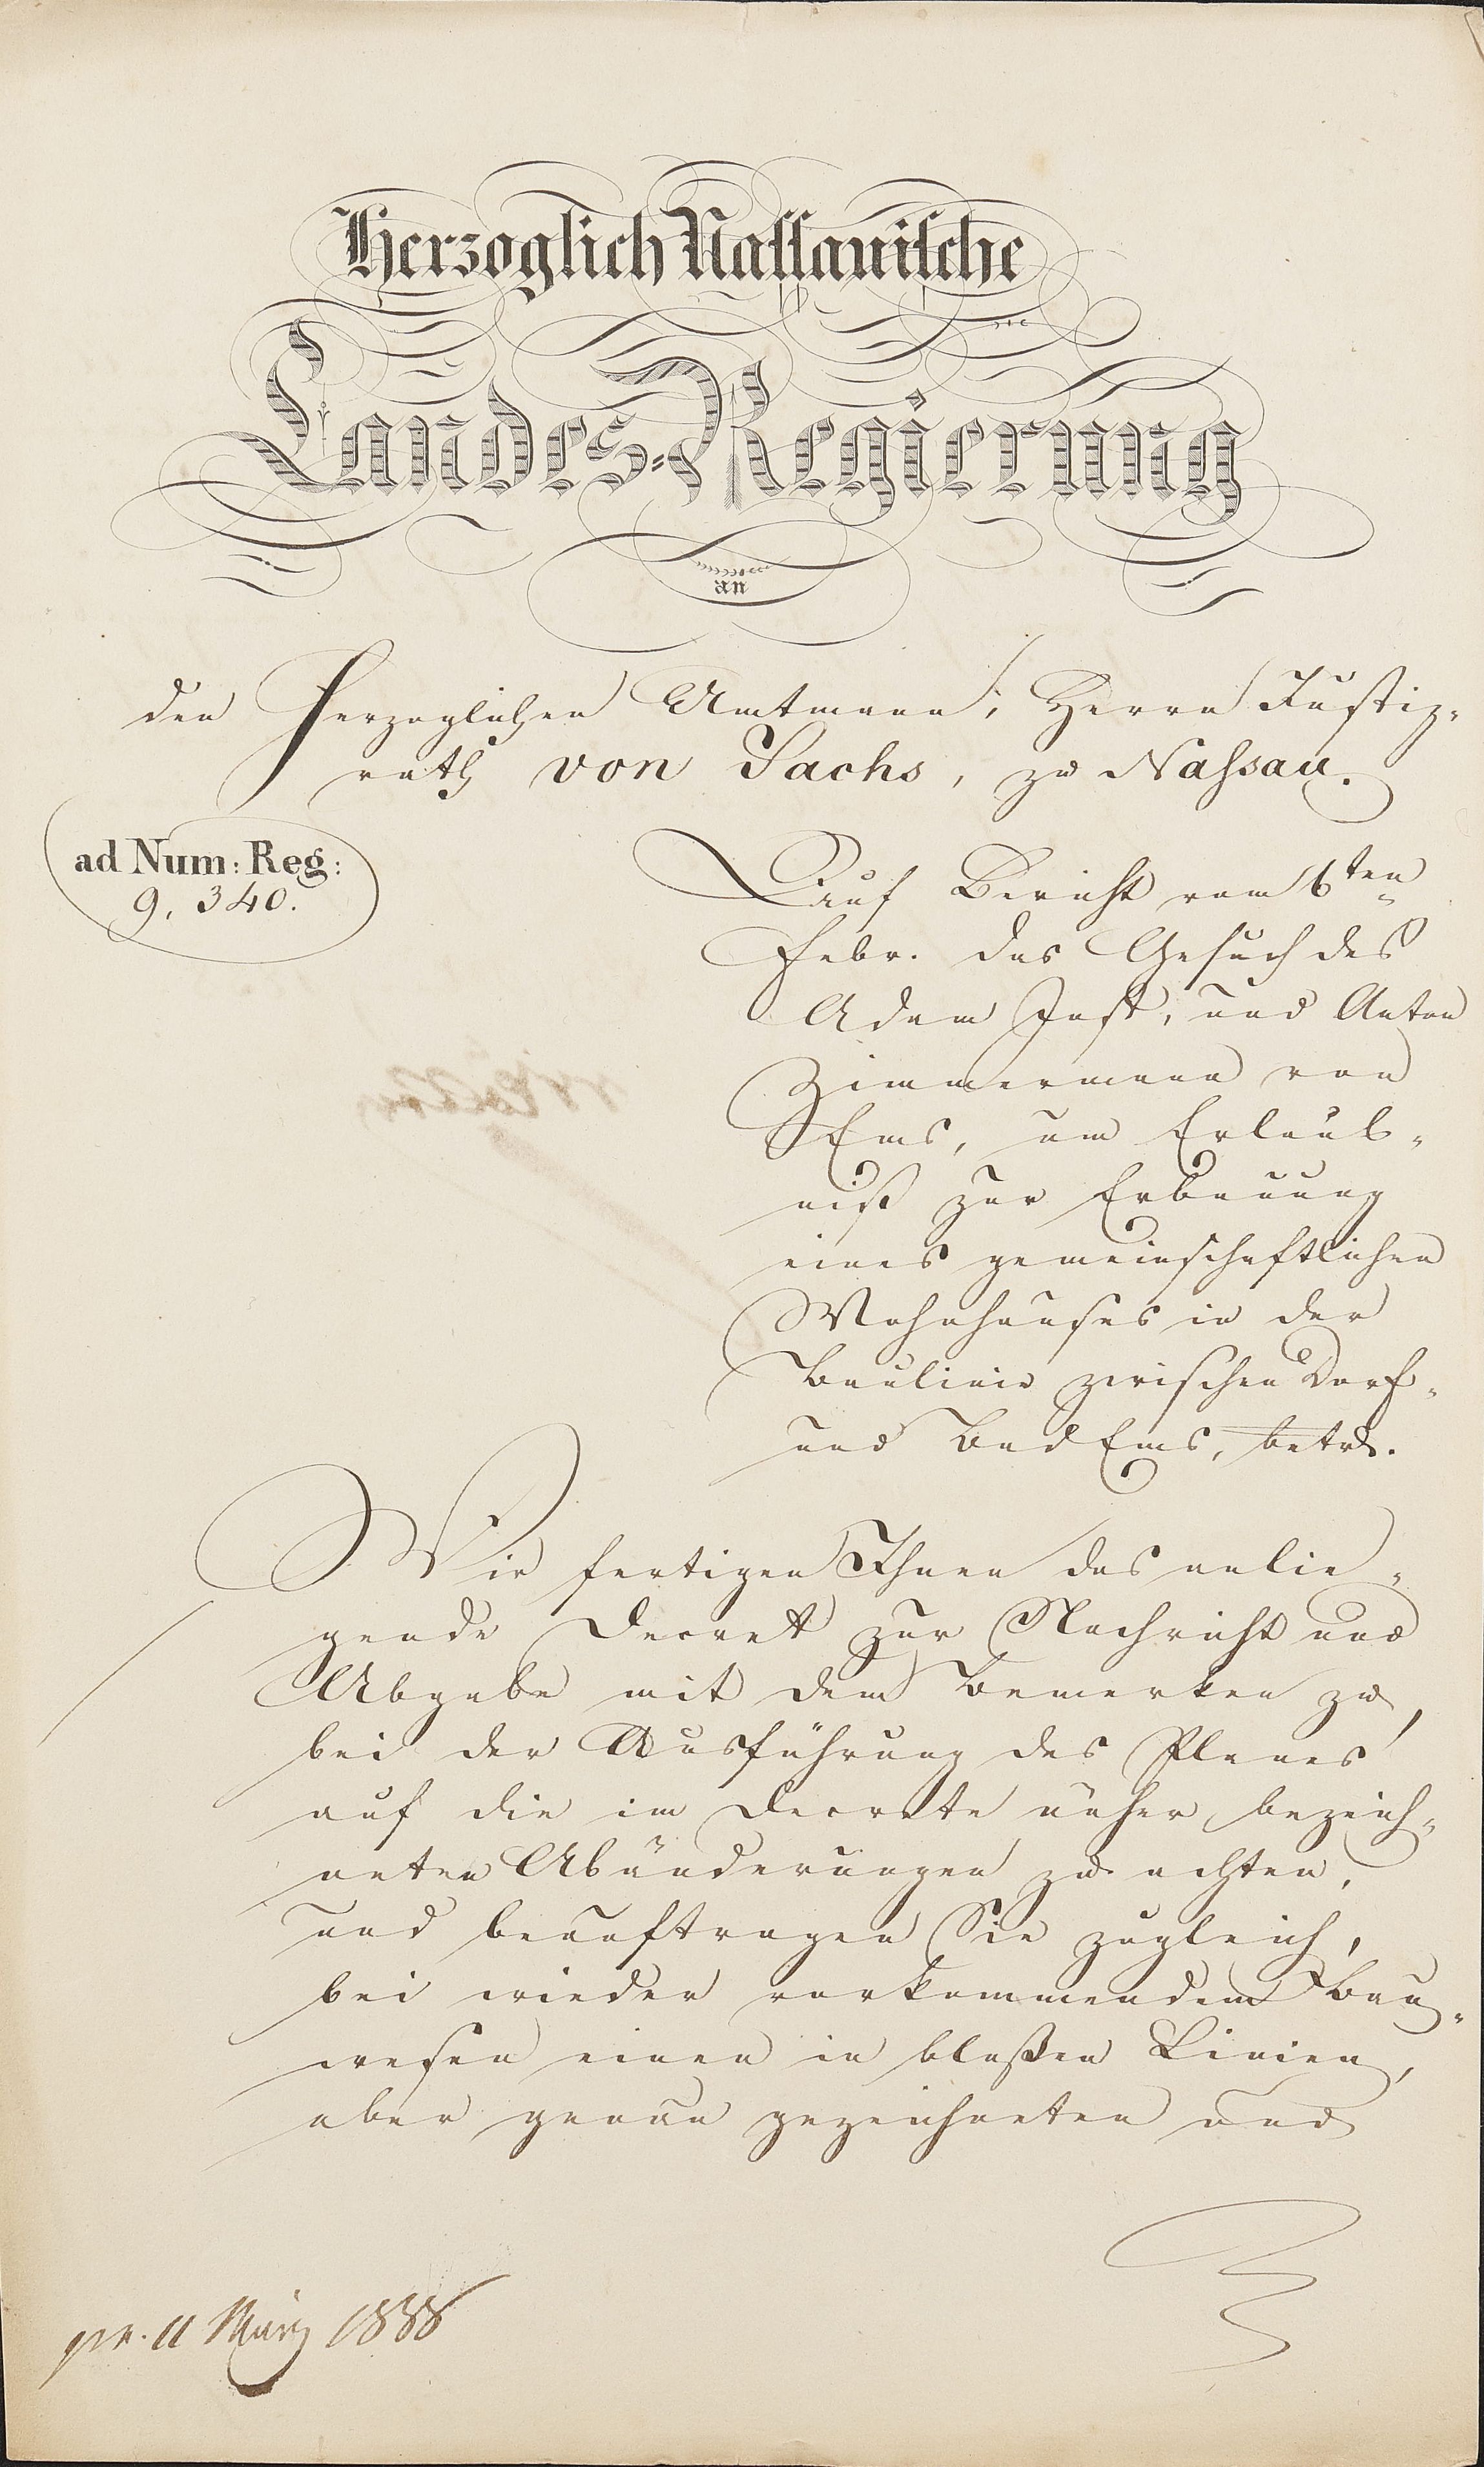 Herzoglich Nassauische
Landes-Regierung
an
den Herzoglichen Amtmann, Herrn Justiz-
rath von Sachs, zu Nassau.
ad Num: Reg:
9,340.
Auf Bericht vom 6ten
Febr. das Gesuch des
Adam Jost, und Anton
Zimmermann von
Ems, um Erlaub-
niß zur Erbauung
eines gemeinschaftlichen
Wohnhauses in der
Baulinie zwischen Dorf-
und Bad Ems, betrd.
Wir fertigen Ihnen das anlie-
gende Decret zur Nachricht und
Abgabe mit dem Bemerken zu,
bei der Ausführung des Planes
auf die im Decrete näher bezeich-
neten Abänderungen zu achten,
und beauftragen Sie zugleich,
bei wieder vorkommendem Bau-
wesen einen in bloßen Linien,
aber genau gezeichneten und
pr. 11 März 1838